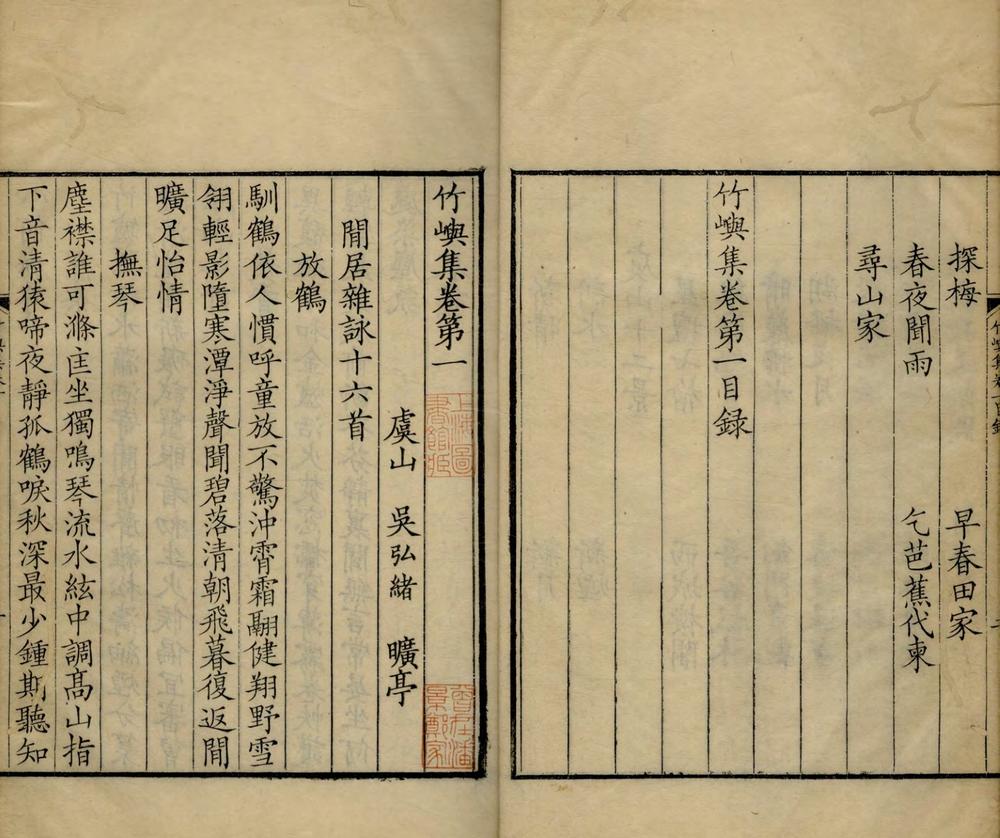 探梅 早春田家
春夜聞雨 乞芭蕉代柬
尋山家
竹嶼集卷第一目録
竹嶼集卷第一
虞山 吳弘緒 曠亭
閒居雜詠十六首
放鶴
馴鶴依人慣呼童放不驚沖霄霜翮健翔野雪
翎輕影墮寒潭淨聲聞碧落清朝飛暮復返閒
曠足怡情
撫琴
塵襟誰可滌匡坐獨鳴琴流水絃中調高山指
下音清猿啼夜靜孤鶴唳秋深最少鍾期聽知
上海圖書館藏